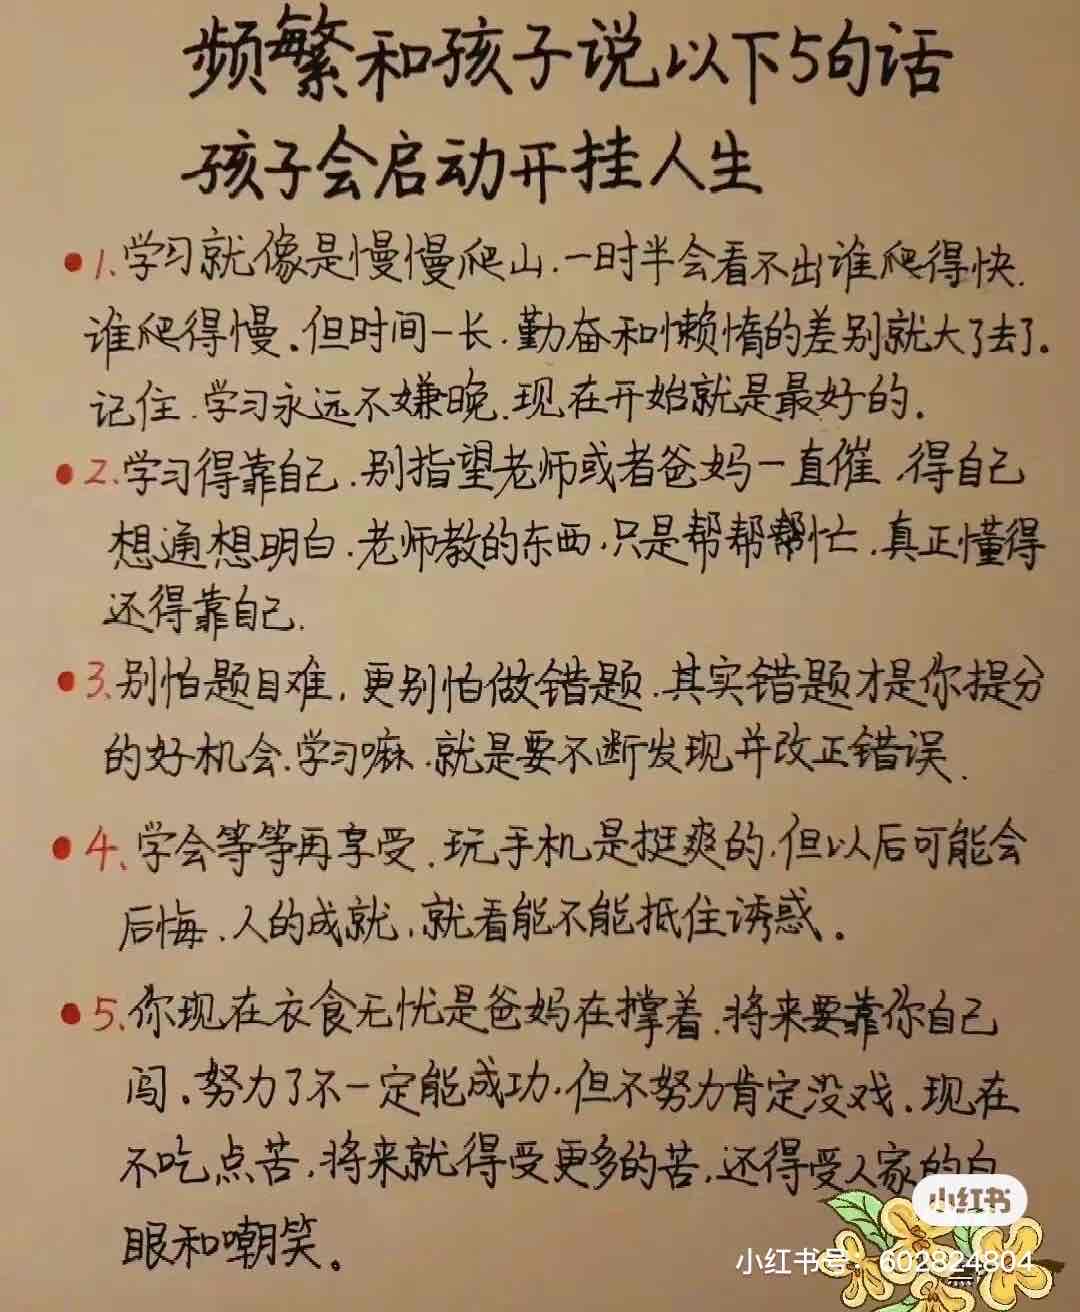 频繁和孩子说以下5句话
孩子会启动开挂人生
1.学习就像是慢慢爬山.一时半会看不出谁爬得快.
谁爬得慢。但时间一长.勤奋和懒惰的差别就大了去了。
记住.学习永远不嫌晚.现在开始就是最好的.
2.学习得靠自己.别指望老师或者爸妈一直催.得自己
想通想明白.老师教的东西.只是帮帮帮忙.真正懂得
还得靠自己.
3.别怕题目难,更别怕做错题.其实错题才是你提分
的好机会.学习嘛.就是要不断发现并改正错误.
4.学会等等再享受.玩手机是挺爽的.但以后可能会
后悔.人的成就,就看能不能抵住诱惑。
5.你现在衣食无忧是爸妈在撑着.将来要靠你自己
闯。努力了不一定能成功.但不努力肯定没戏.现在
不吃点苦.将来就得受更多的苦.还得受人家的白
眼和嘲笑。
小红书
小红书号：602824804